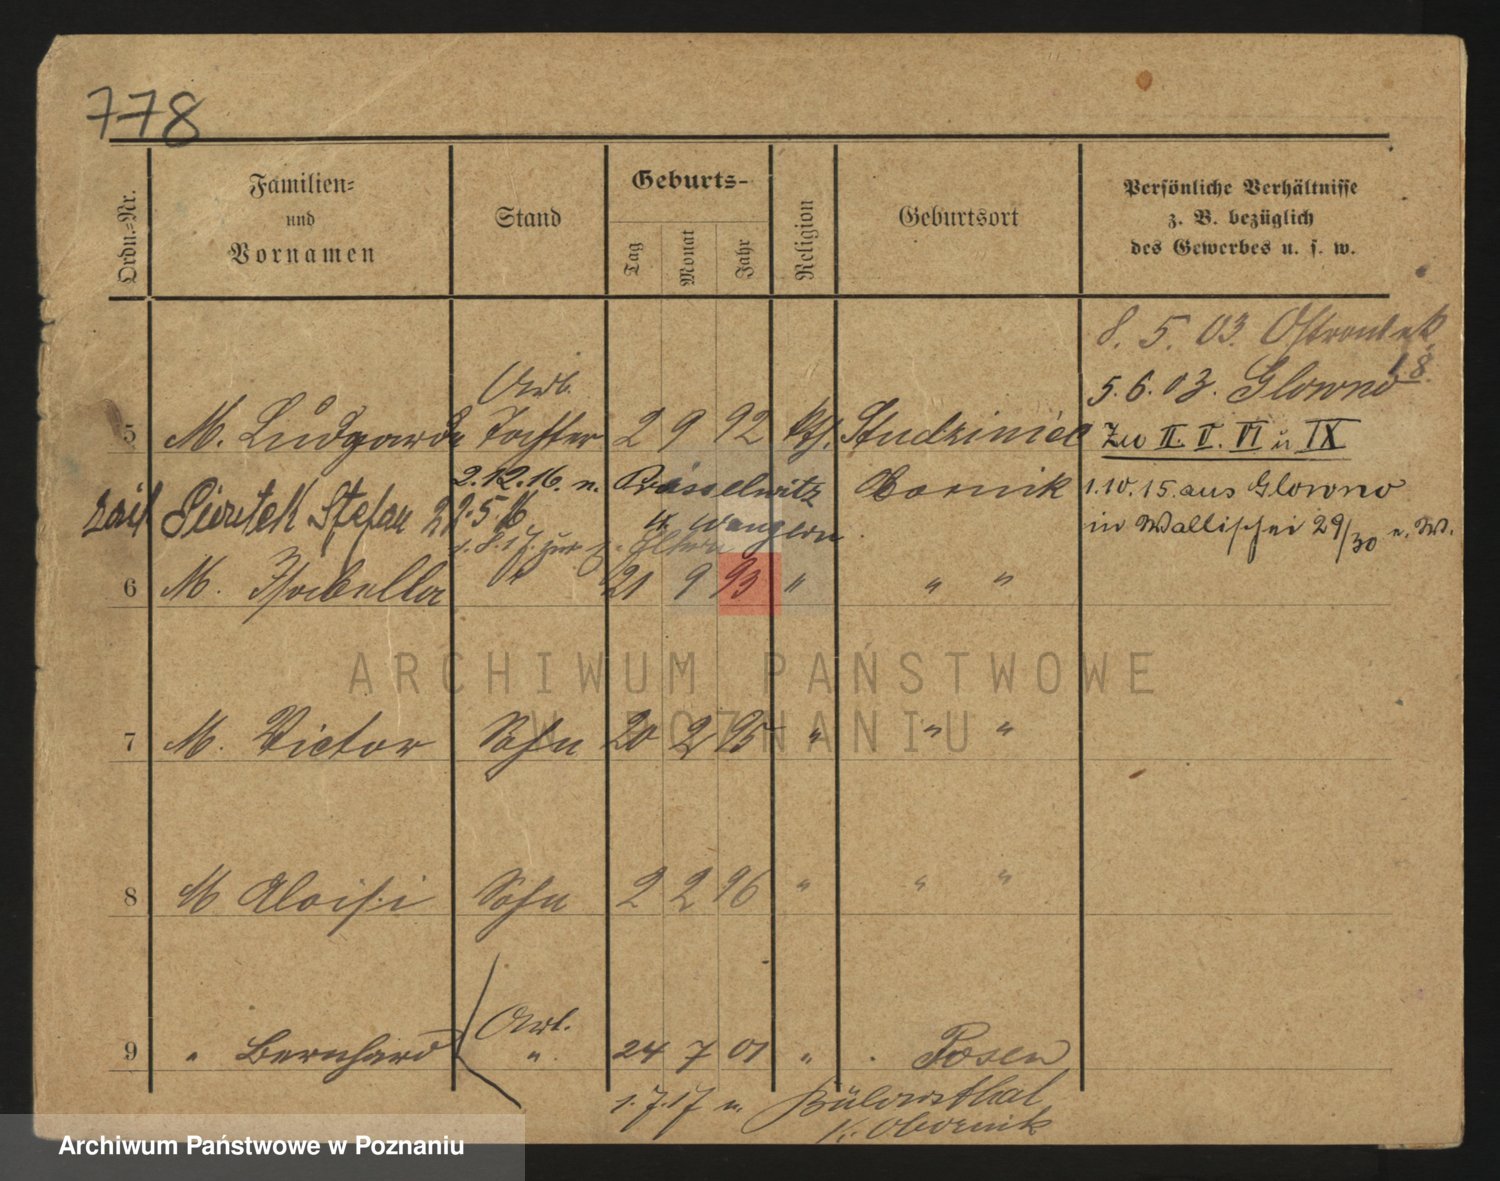 778
Ordn.-Nr.
Familien-
und
Vornamen
Stand
Geburts-
Tag
Monat
Jahr
Religion
Geburtsort
Persönliche Verhältnisse
z. B. bezüglich
des Gewerbes u. s. w.
8. 5. 03.
5. 6. 03. Glowno
18.
Arb.
5 M. Ludgarde Tochter 2 9 92 kth. Studziniec
Zu II. V. VI u IX
2.12.16. n.
Obornik
1.10.15. aus Glowno
Stefan 22.5.16
Wangern
in Wallischei 29/30 n. W.
1.8.17. zur Eltern
6 M. Isabella " 21 9 93 " " "
ARCHIWUM PAŃSTWOWE
W POZNANIU
7 M. Victor Sohn 20 2 95 " " "
8 M Aloisi Sohn 2 2 96 " " "
Arb.
9 " Bernhard " 24 7 01 " Posen
1.7.17 n. Bülowsthal
K. Obornik
Archiwum Państwowe w Poznaniu